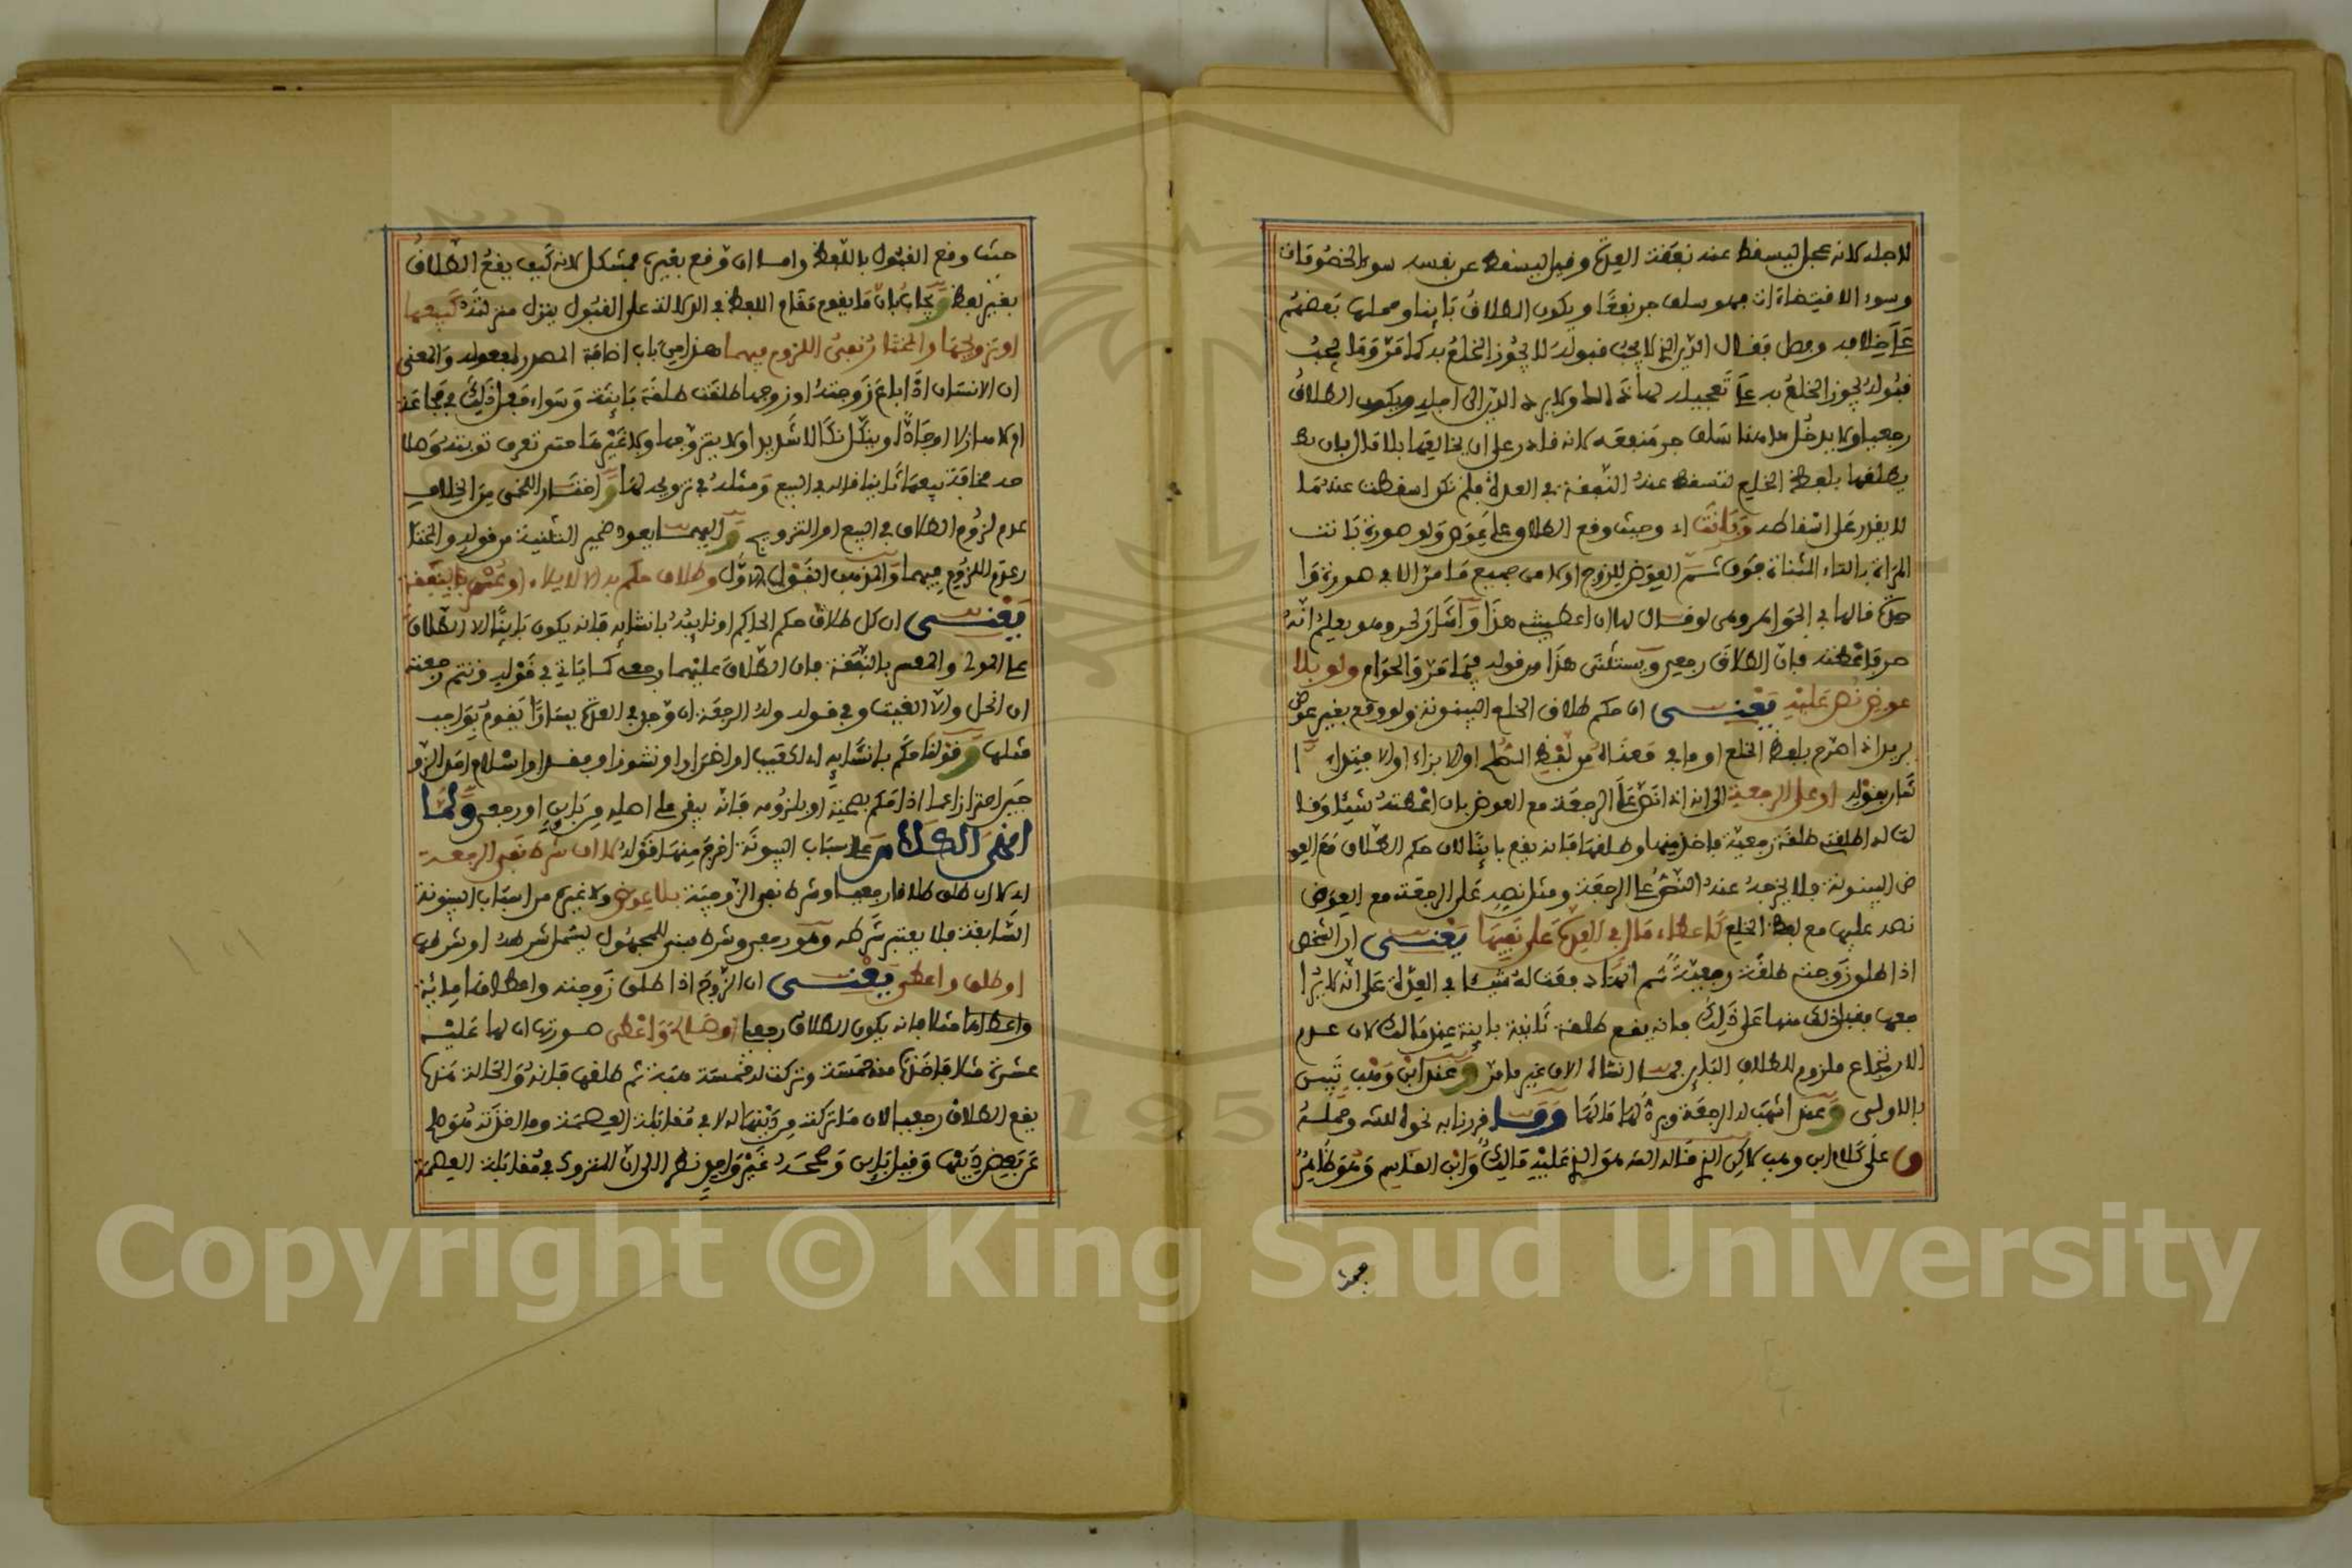 للاجله لانه عجل ليسقط عنه نفقة العدة وقيل ليسقط عن نفسه سوء الخصومات
وسوء الاقتضاءات فهو سلف جر نفعا ويكون الطلاق بائنا وحملها بعضهم
على خلافه وفصل فقال الدين الذي لا يجب قبوله لا يجوز الخلع به كما مر وما يجب
قبوله يجوز الخلع به على تعجيله لها ويكون الطلاق
رجعيا ولا يدخل هاهنا سلف جر منفعة لانه قادر على ان
يطلقها بلفظ الخلع لتسقط عنه النفقة في العدة فلم تكن اسقطت عنه ما
لا يقدر على اسقاطه وبانت اي وحيث وقع الطلاق على عوض ولو صورة بانت
المرأة بالتاء المثناة فوق ثم العوض للزوج اولا من جميع ما مر الا في صورة وا
حدة قالها في الجواهر وهي لو قال لها ان اعطيتني هذا واشار لحر وهو يعلم انه
حر فاعطته فان الطلاق رجعي ويستثنى هذا من قوله فيما مر والحرام ولو بلا
عوض نص عليه يعني ان حكم طلاق الخلع البينونة ولو وقع بغير عوض
يريد اذا صرح بلفظ الخلع او ما في معناه من لفظ الصلح او الابراء او الافتداء وا
شار بقوله او على الرجعية الى انه اذا نص على الرجعة مع العوض بان اعطته شيئا وقا
لت له طلقني طلقة رجعية فاخذ منها وطلقها فانه يقع بائنا لان حكم الطلاق مع العو
ض البينونة فلا يخرجه عنه النص على الرجعة ومثل نصه على الرجعة مع العوض
نصه عليها مع لفظ الخلع كاعطاء مال في العدة على نفيها يعني ان الشخص
اذا طلق زوجته طلقة رجعية ثم انها دفعت له شيئا في العدة على انه لا يرا
جعها فقبل ذلك منها على ذلك فانه يقع طلقة ثانية بائنة عند مالك لان عدم
الارتجاع ملزوم للطلاق البائن فهما انشاه الان غير ما مر وعند ابن وهب تبين
بالاولى وعند اشهب له الرجعة ويرد لها مالها وقد قررنا به نحوه للشه وحمله
ق على كلام ابن وهب لاكن الذي قاله الشه هو الذي عليه مالك وابن القاسم وهو ظاهر
حيث
حيث وقع القبول باللفظ واما ان وقع بغيره فمشكل لانه كيف يقع الطلاق
بغير لفظ ويجاب بان ما يقوم مقام اللفظ في الدلالة على القبول ينزل منزلته كبيعها
او تزويجها والمختار نفي اللزوم فيهما هذا من باب اضافة المصدر لمفعوله والمعنى
ان الانسان اذا باع زوجته او زوجها طلقت طلقة بائنة وسواء فعل ذلك في مجاعة
اولا هازلا او جادا وينكل نكالا شديدا ولا يتزوجها ولا غيرها حتى تعرف توبته وصلا
حه مخافة بيعها ثانيا قاله في البيع ومثله في تزويجه لها واختار اللخمي من الخلاف
عدم لزوم الطلاق في البيع او التزويج واليهما يعود ضمير التثنية من قوله والمختا
ر عدم اللزوم فيهما والمذهب القول الاول وطلاق حكم به الا لايلاء او عسر بالنفقة
يعني ان كل طلاق حكم الحاكم او نائبه بانشائه فانه يكون بائنا الا الطلاق
على المولي والمعسر بالنفقة فان الطلاق عليهما رجعي كما ياتي في قوله وتتم رجعته
ان انحل والا الغيت وفي قوله وله الرجعة ان وجد في العدة يسارا يقوم بواجب
مثلها وقولنا حكم بانشائه اي لعيب او اضرار او نشوز او فقد او اسلام احد الزو
جين احترازا عما اذا حكم بصحته او بلزومه فانه يبقى على اصله من بائن او رجعي ولما
انهى الكلام على اسباب البينونة اخرج منها قوله لا ان شرط نفي الرجعة
اي لا ان طلق طلاقا رجعيا وشرط نفي الزوجية بلا عوض ولا غيره من اسباب البينونة
السابقة فلا يعتبر شرطه وهو رجعي وشرط مبني للمجهول ليشمل شرطه او شرطها
او طلق واعطى يعني ان الزوج اذا طلق زوجته واعطاها مائة
واعطاها مثلا فانه يكون الطلاق رجعيا او صالح واعطى صورتها ان لها عليه
عشرة مثلا فاخذت منه خمسة وتركت له خمسة منه ثم طلقها فانه والحالة هذه
يقع الطلاق رجعيا لان ما تركته من دينها له لا في مقابلة العصمة وما اخذته هو صلح
عن بعض دينها وقيل بائن وصححه غير واحد نظرا الى ان المتروك في مقابلة العصمة